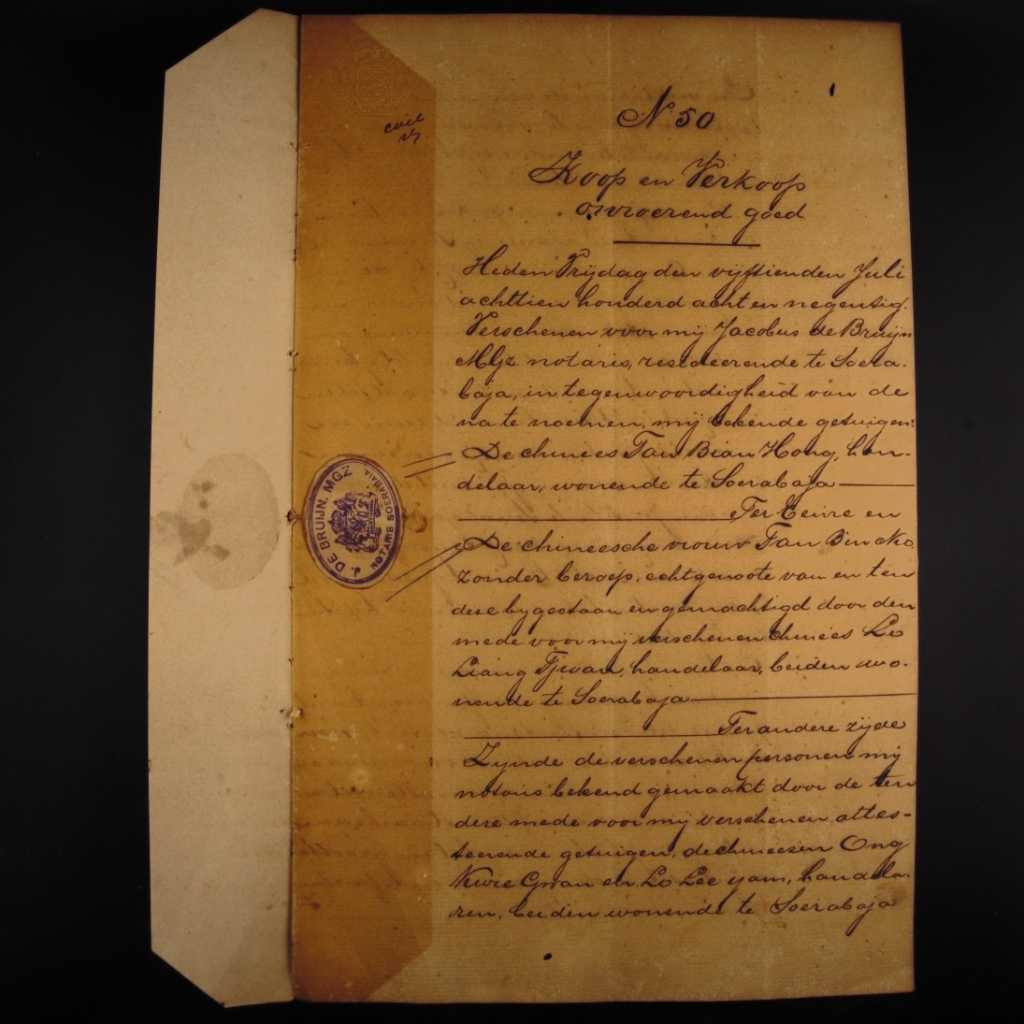 N 50
Koop en Verkoop
onroerend goed
Heden Vrijdag den vijftienden Juli
achttien honderd acht en negentig.
Verschenen voor mij Jacobus de Bruijn
MGz. notaris, resideerende te Soera-
baja, in tegenwoordigheid van de
na te noemen, mij bekende getuigen:
De chinees Tan Bian Hong, han-
delaar, wonende te Soerabaja
Ter Eenre en
De chineesche vrouw Tan Bin
zonder beroep, echtgenoote van en ten
deze bygestaan en gemachtigd door den
mede voor mij verschenen chinees Lo
Liang Tjwan, handelaar, beiden wo-
nende te Soerabaja
Ter andere zijde
Zynde de verschenen personen mij
notaris bekend gemaakt door de ten
deze mede voor mij verschenen attes-
teerende getuigen, de chineezen Ong
Kwie Gwan en Lo Lee yam, handela-
ren, beiden wonende te Soerabaja
J. DE BRUIJN. MGZ
NOTARIS SOERABAIA